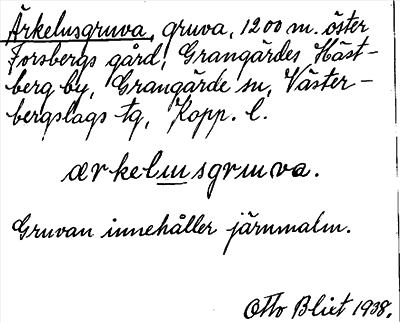 Ärkelusgruva, gruva, 1200 m. öster
Forsbergs gård, Grangärdes Häst-
berg by, Grangärde sn, Väster-
bergslags tg, Kopp. l.
ærkelusgruva.
Gruvan innehåller järnmalm.
Otto Blixt 1938.